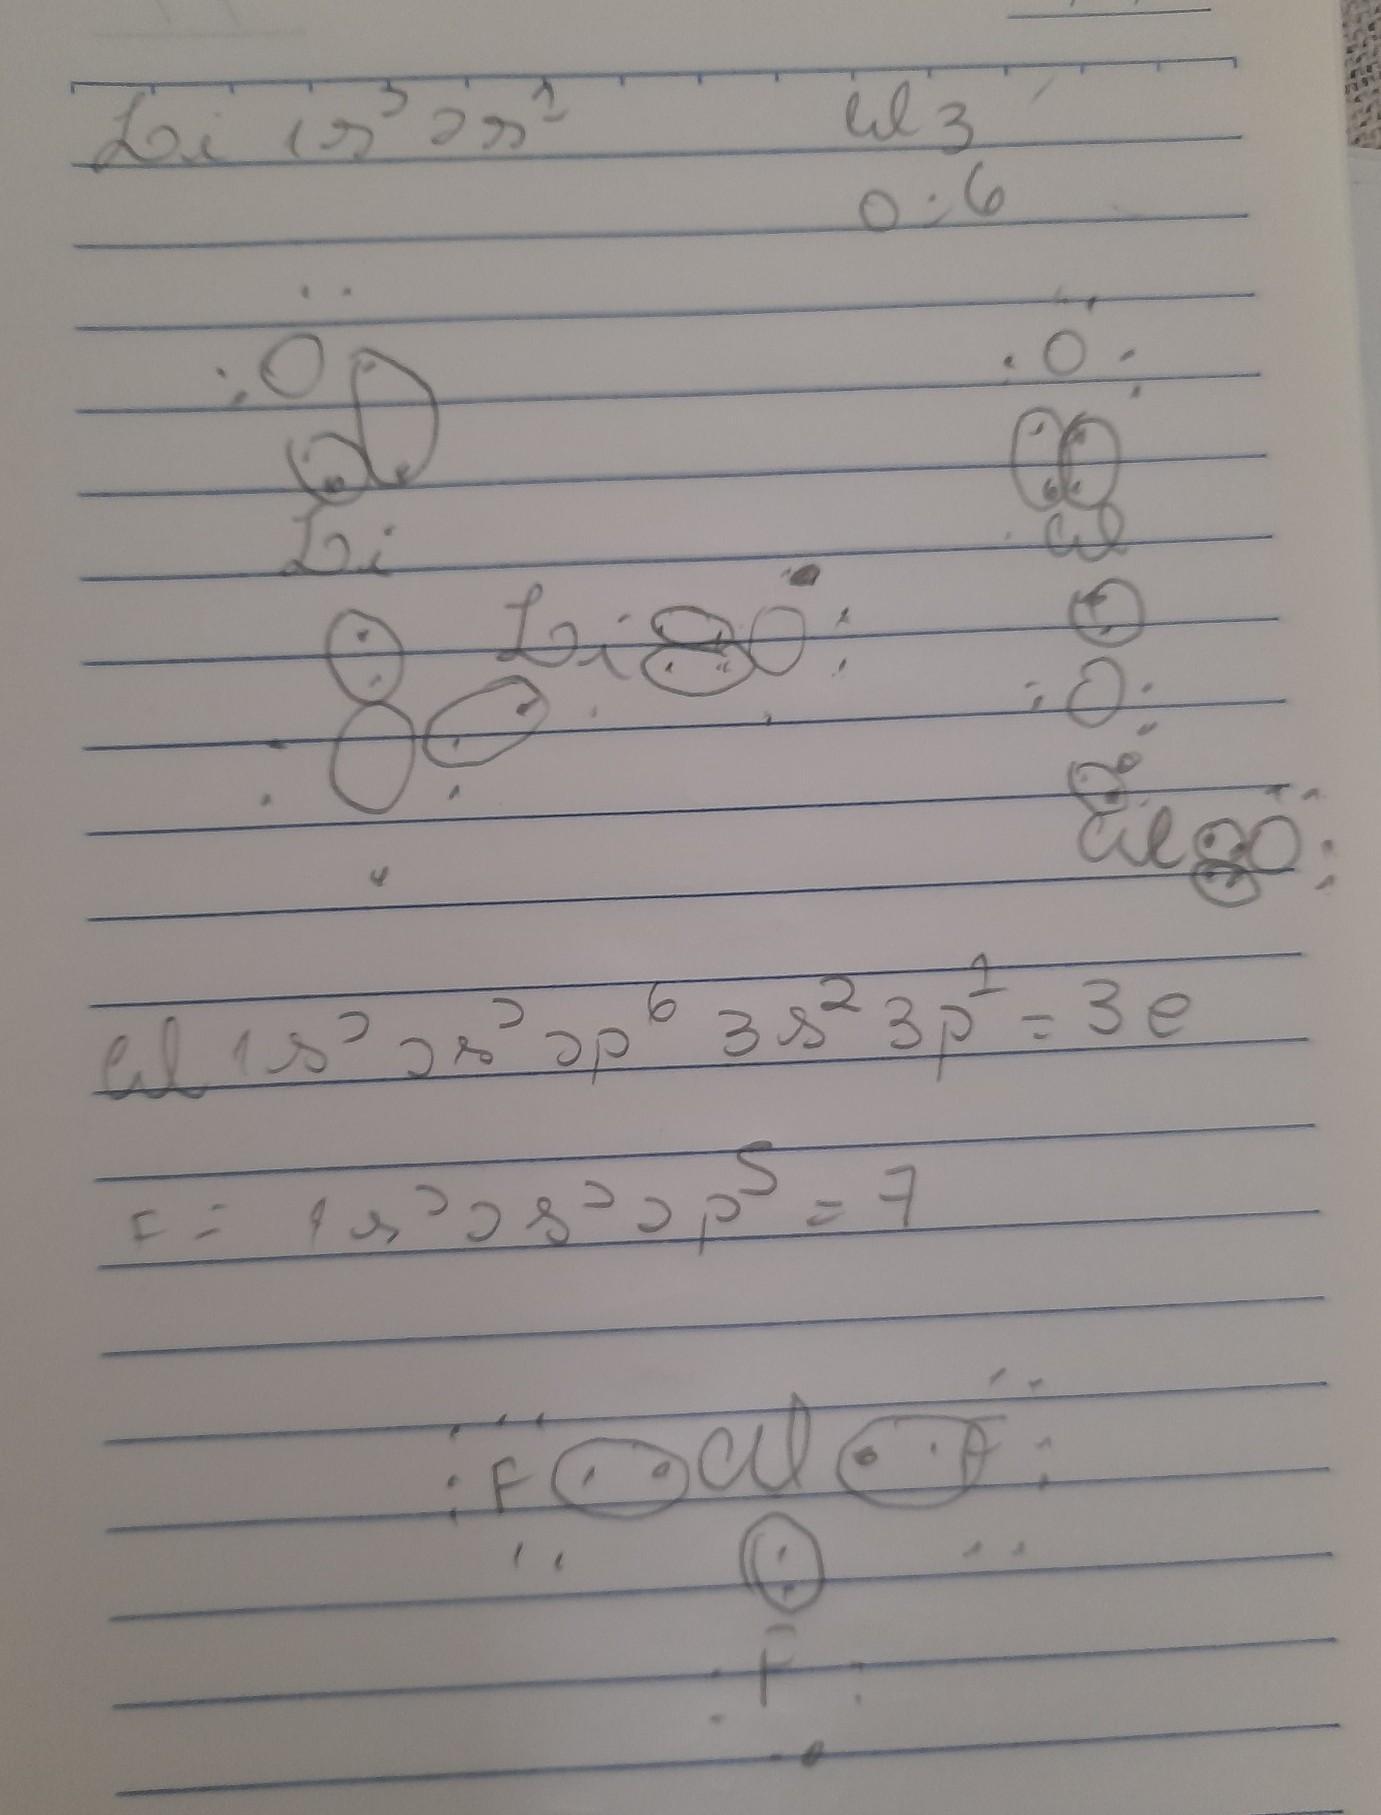 Li 1s² 2s¹
Al 3
O : 6
O
O
Li
Al
Li O
O
O
Al O
Al 1s² 2s² 2p⁶ 3s² 3p¹ = 3e
F = 1s² 2s² 2p⁵ = 7
F Al F
F